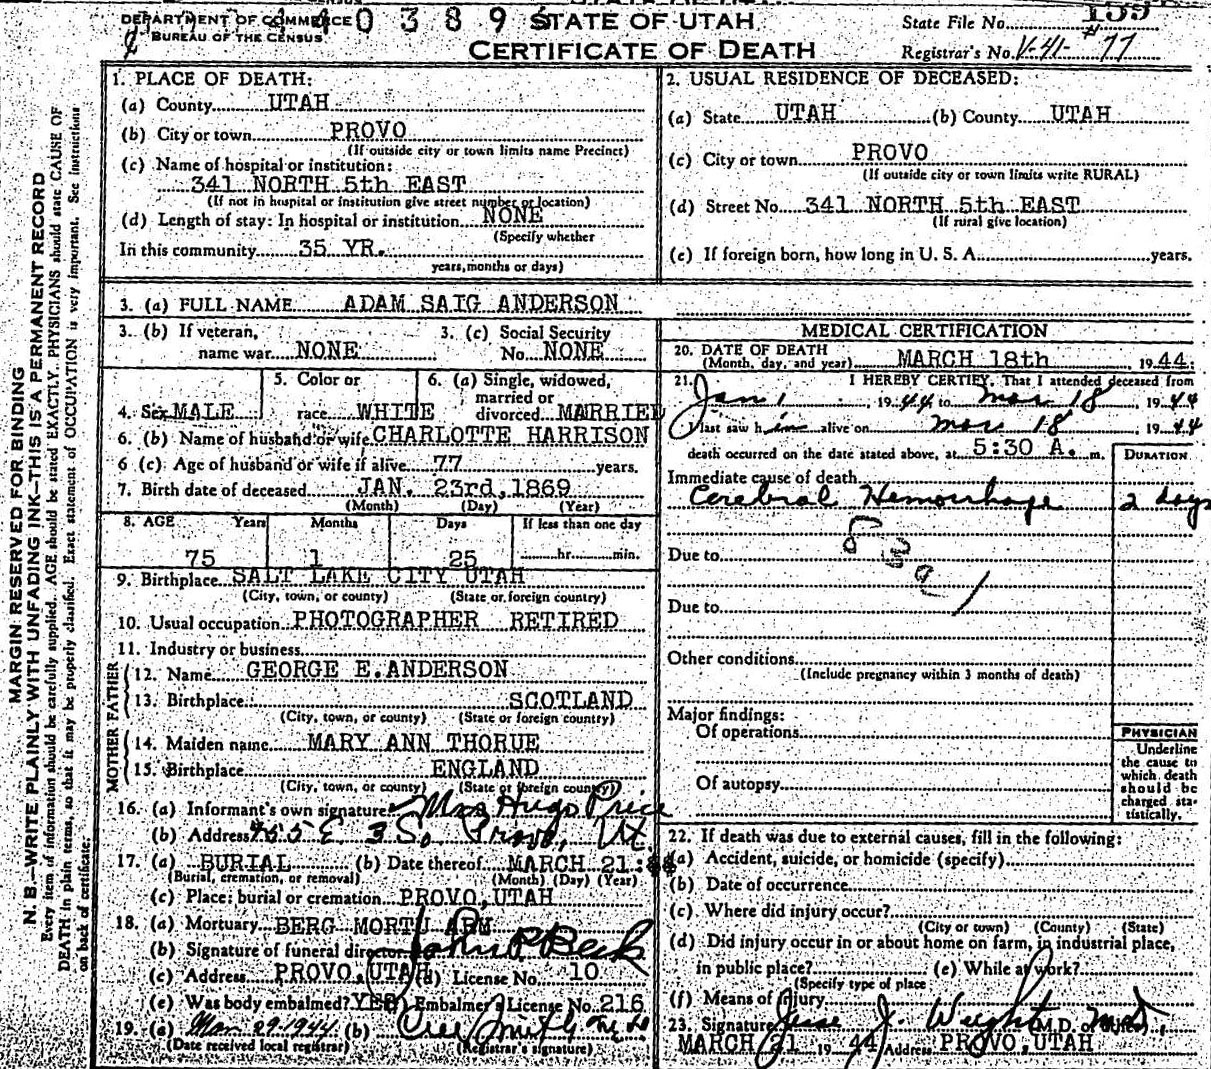 DEPARTMENT OF COMMERCE
BUREAU OF THE CENSUS
0 3 8 9
STATE OF UTAH
CERTIFICATE OF DEATH
State File No.
Registrar's No. V-41- #77
MARGIN RESERVED FOR BINDING
N. B.—WRITE PLAINLY WITH UNFADING INK—THIS IS A PERMANENT RECORD
Every item of information should be carefully supplied. AGE should be stated EXACTLY. PHYSICIANS should state CAUSE OF
DEATH in plain terms, so that it may be properly classified. Exact statement of OCCUPATION is very important. See instructions
on back of certificate.
1. PLACE OF DEATH:
(a) County UTAH
(b) City or town PROVO
(If outside city or town limits name Precinct)
(c) Name of hospital or institution:
341 NORTH 5th EAST
(If not in hospital or institution give street number or location)
(d) Length of stay: In hospital or institution NONE
(Specify whether
In this community 35 YR.
years, months or days)
2. USUAL RESIDENCE OF DECEASED:
(a) State UTAH (b) County UTAH
(c) City or town PROVO
(If outside city or town limits write RURAL)
(d) Street No. 341 NORTH 5th EAST
(If rural give location)
(e) If foreign born, how long in U. S. A. years.
3. (a) FULL NAME ADAM SAIG ANDERSON
3. (b) If veteran,
name war NONE
3. (c) Social Security
No. NONE
4. Sex MALE
5. Color or
race WHITE
6. (a) Single, widowed,
married or
divorced MARRIED
6. (b) Name of husband or wife CHARLOTTE HARRISON
6 (c). Age of husband or wife if alive 77 years.
7. Birth date of deceased JAN. 23rd, 1869
(Month) (Day) (Year)
8. AGE Years Months Days If less than one day
75 1 25 hr. min.
9. Birthplace SALT LAKE CITY UTAH
(City, town, or county) (State or foreign country)
10. Usual occupation PHOTOGRAPHER RETIRED
11. Industry or business
FATHER
12. Name GEORGE E. ANDERSON
13. Birthplace SCOTLAND
(City, town, or county) (State or foreign country)
MOTHER
14. Maiden name MARY ANN THORUE
15. Birthplace ENGLAND
(City, town, or county) (State or foreign country)
16. (a) Informant's own signature Mrs Hugo Price
(b) Address 455 E. 3 So. Provo, Ut.
17. (a) BURIAL (b) Date thereof MARCH 21:44
(Burial, cremation, or removal) (Month) (Day) (Year)
(c) Place; burial or cremation PROVO, UTAH
18. (a) Mortuary BERG MORTUARM
(b) Signature of funeral director John P. Beck
(c) Address PROVO, UTAH (d) License No. 10
(e) Was body embalmed? YES Embalmer's License No. 216
19. (a) Mar. 29. 1944 (b)
(Date received local registrar) (Registrar's signature)
MEDICAL CERTIFICATION
20. DATE OF DEATH
(Month, day, and year) MARCH 18th, 1944:
21. I HEREBY CERTIFY, That I attended deceased from
Jan 1, 1944 to Mar 18, 1944
I last saw him alive on Mar 18, 1944
death occurred on the date stated above, at 5:30 A. m.
DURATION
Immediate cause of death
Cerebral Hemorrhage 2 days
Due to
Due to
Other conditions
(Include pregnancy within 3 months of death)
Major findings:
Of operations
Of autopsy
PHYSICIAN
Underline
the cause to
which death
should be
charged sta-
tistically.
22. If death was due to external causes, fill in the following:
(a) Accident, suicide, or homicide (specify)
(b) Date of occurrence
(c) Where did injury occur?
(City or town) (County) (State)
(d) Did injury occur in or about home on farm, in industrial place,
in public place? (e) While at work?
(Specify type of place
(f) Means of injury
23. Signature Jesse J. Weight M.D.
MARCH 21 1944 Address PROVO, UTAH